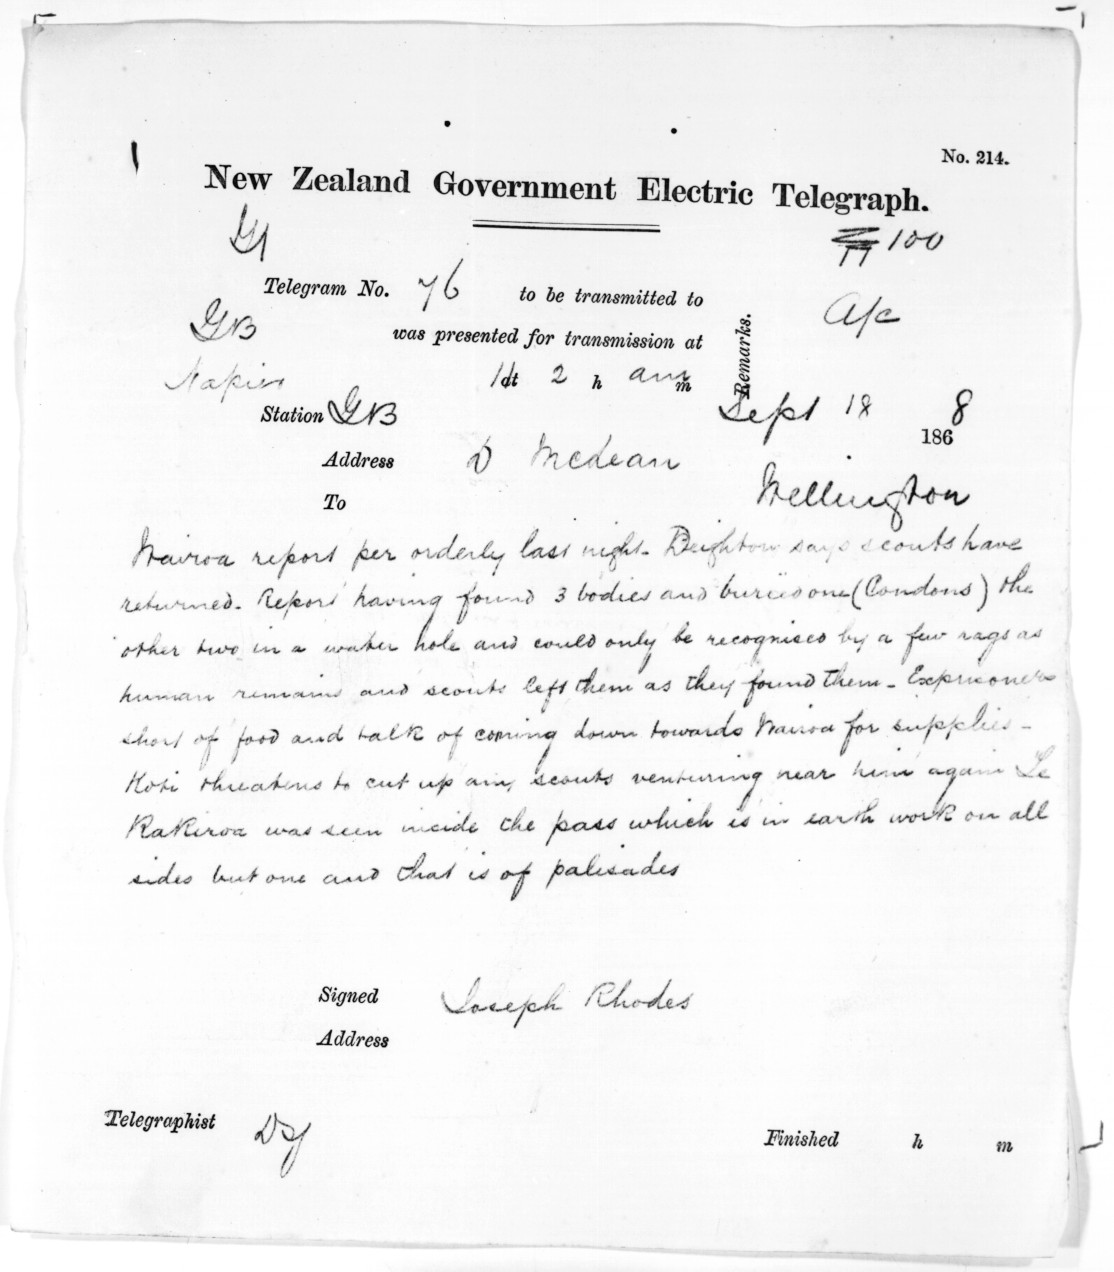 No. 214.
New Zealand Government Electric Telegraph.
100
Telegram No. 76 to be transmitted to
A/c
GB
was presented for transmission at
Remarks.
Napier
11 2 h am m
Station GB
Sept 18 1868
Address D McLean
To
Wellington
Wairoa report per orderly last night - Deighton says scouts have
returned - Report having found 3 bodies and buried one (Condons) the
other two in a water hole and could only be recognised by a few rags as
human remains and scouts left them as they found them - Exprisoners
short of food and talk of coming down towards Wairoa for supplies -
Koti threatens to cut up any scouts venturing near him again Te
RaKiroa was seen inside the pass which is in earth work on all
sides but one and that is of palisades
Signed Joseph Rhodes
Address
Telegraphist
Finished h m